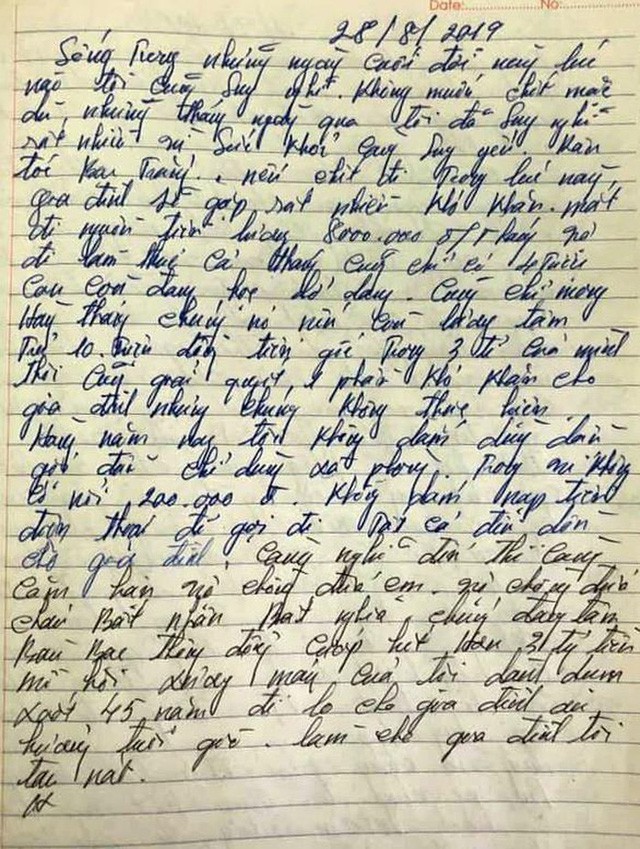 Date: No:
28/8/2019
Sống Trong những ngày cuối đời này lúc
nào tôi cũng suy nghĩ. Không muốn chết mặc
dù, những tháng ngày qua tôi đã suy nghĩ
rất nhiều vì sức khỏe ngày suy yếu. Hơn
tới nếu chết đi Trong lúc này,
gia đình sẽ gặp rất nhiều khó khăn. mất
đi nguồn tiền lương 8000.000 đ/tháng vợ
đi làm thuê cả tháng cũng chỉ có 4 Triệu
Con còn đang học dở dang. Cũng chỉ mong
Hàng tháng chúng nó nếu còn lương tâm
Trả 10. Triệu đồng tiền gốc Trong 3 tỉ của mình
Thì cũng giải quyết, 1 phần khó khăn cho
gia đình nhưng chúng không thực hiện.
Hàng năm nay tôi không dám dùng dầu
gội đầu chỉ dùng xà phòng. Trong ví không
có nổi 200.000 đ. không dám nạp tiền
điện thoại để gọi đi Tất cả đều dồn
cho gia đình. Càng nghĩ đến thì càng
căm hận vợ chồng đứa em. vợ chồng đứa
cháu Bất nhân Bất nghĩa, chúng đang tâm
Bàn Bạc thông đồng cướp hết Hơn 3 tỷ tiền
mồ hôi xương máu của tôi dành dụm
suốt 45 năm để lo cho gia đình
hưởng tuổi già. làm cho gia đình tôi
tan nát.